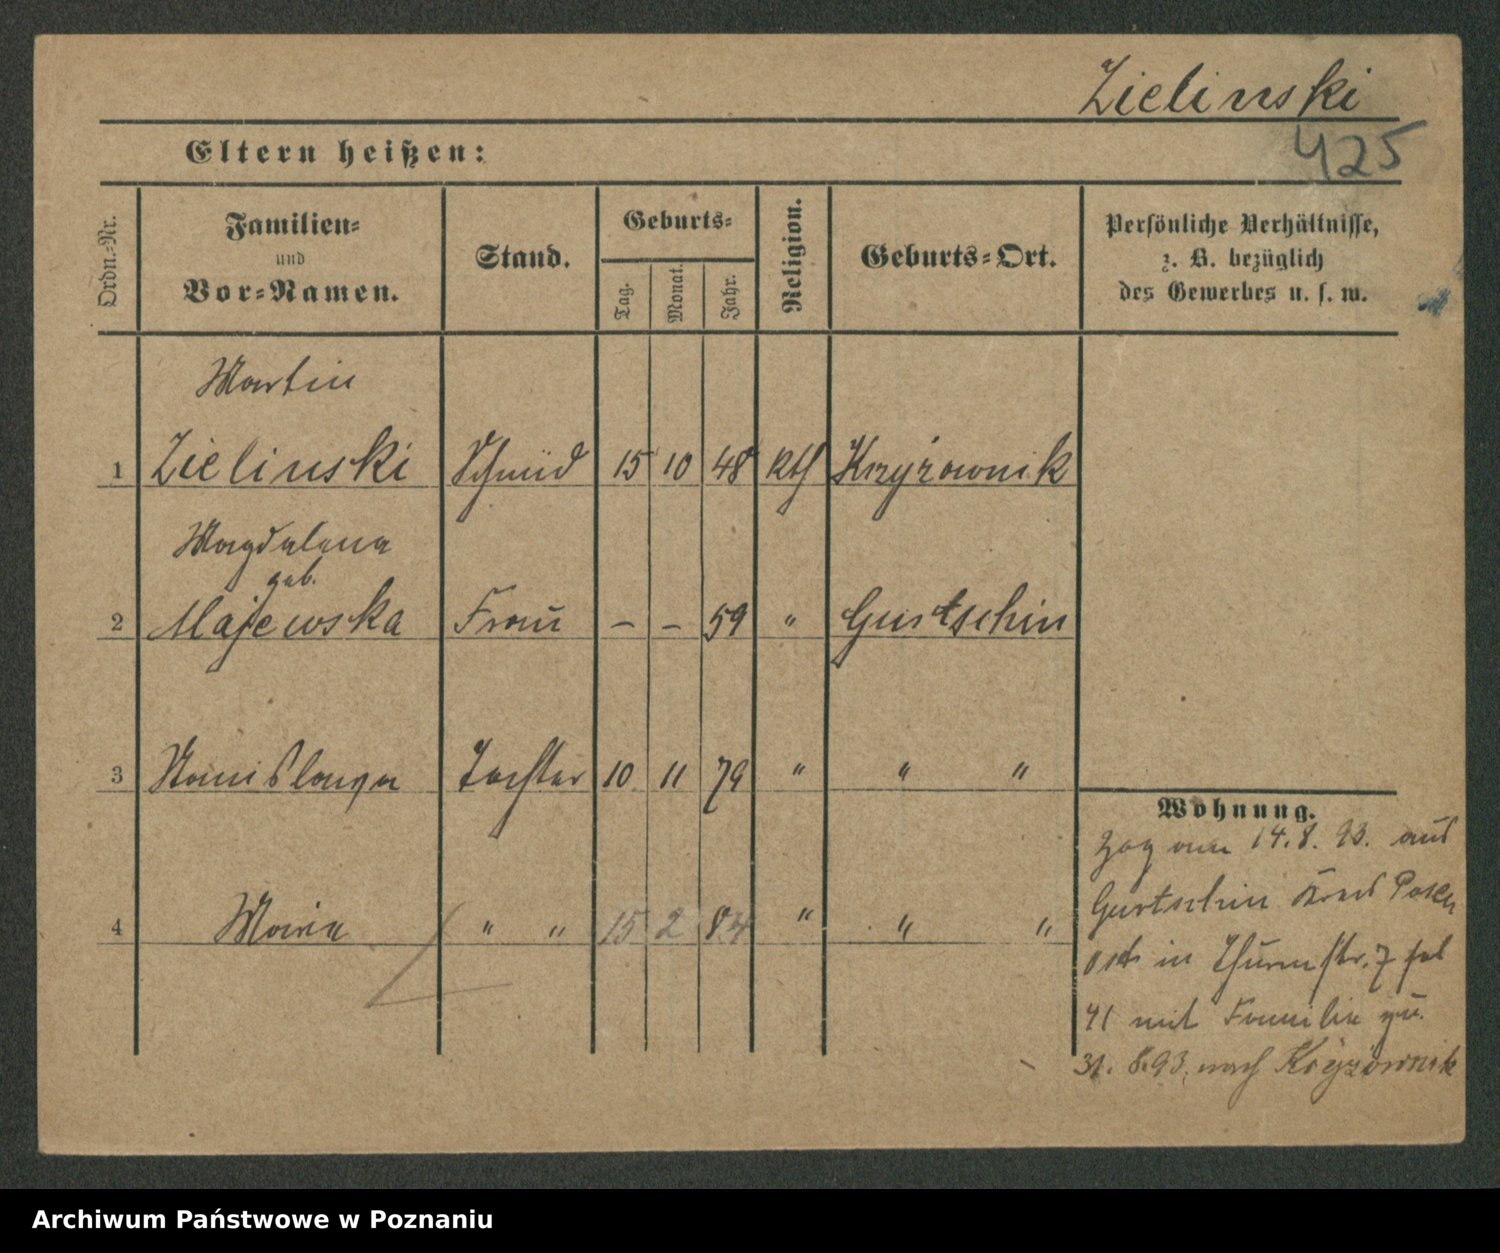 Zielinski
Eltern heißen:
425
Ordn.-Nr.
Familien-
und
Vor-Namen.
Stand.
Geburts-
Tag.
Monat.
Jahr.
Religion.
Geburts-Ort.
Persönliche Verhältnisse,
z. B. bezüglich
des Gewerbes u. s. w.
Martin
1 Zielinski Schmid 15 10 48 kth Krzyżownik
Magdalena
geb.
2 Majewska Frau – – 59 " Gurtschin
3 Stanislawa Tochter 10 11 79 " " "
4 Maria " " 15 2 84 " " "
Wohnung.
Zog am 14.8.93. aus
Gurtschin Kreis Posen
ost in Thurmstr. 7 bei
41 mit Familie zu.
31. 8.93. nach Krzyżownik
Archiwum Państwowe w Poznaniu